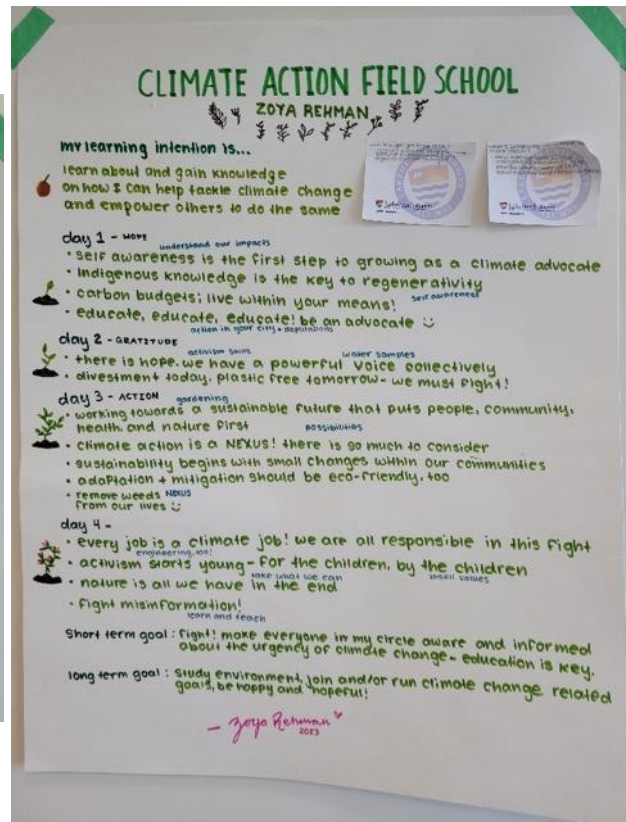 CLIMATE ACTION FIELD SCHOOL
ZOYA REHMAN
my learning intention is...
learn about and gain knowledge
on how I can help tackle climate change
and empower others to do the same
day 1 - HOPE
understand our impacts
• self awareness is the first step to growing as a climate advocate
• Indigenous knowledge is the key to regenerativity
• carbon budgets; live within your means!
self awareness
• educate, educate, educate! be an advocate
action in your city + deputations
day 2 - GRATITUDE
activism
water samples
• there is hope. we have a powerful voice collectively
• divestment today, plastic free tomorrow - we must fight!
day 3 - ACTION
gardening
• working towards a sustainable future that puts people, community,
health and nature first
possibilities
• climate action is a NEXUS! there is so much to consider
• sustainability begins with small changes within our communities
• adaptation + mitigation should be eco-friendly, too
• remove weeds
NEXUS
from our lives
day 4 -
• every job is a climate job! we are all responsible in this fight
engineering, too!
• activism starts young - for the children, by the children
take what we can
instill values
• nature is all we have in the end
• fight misinformation!
learn and teach
Short term goal : fight! make everyone in my circle aware and informed
about the urgency of climate change - education is key.
long term goal : study environment, join and/or run climate change related
goals, be happy and hopeful!
- Zoya Rehman
2023